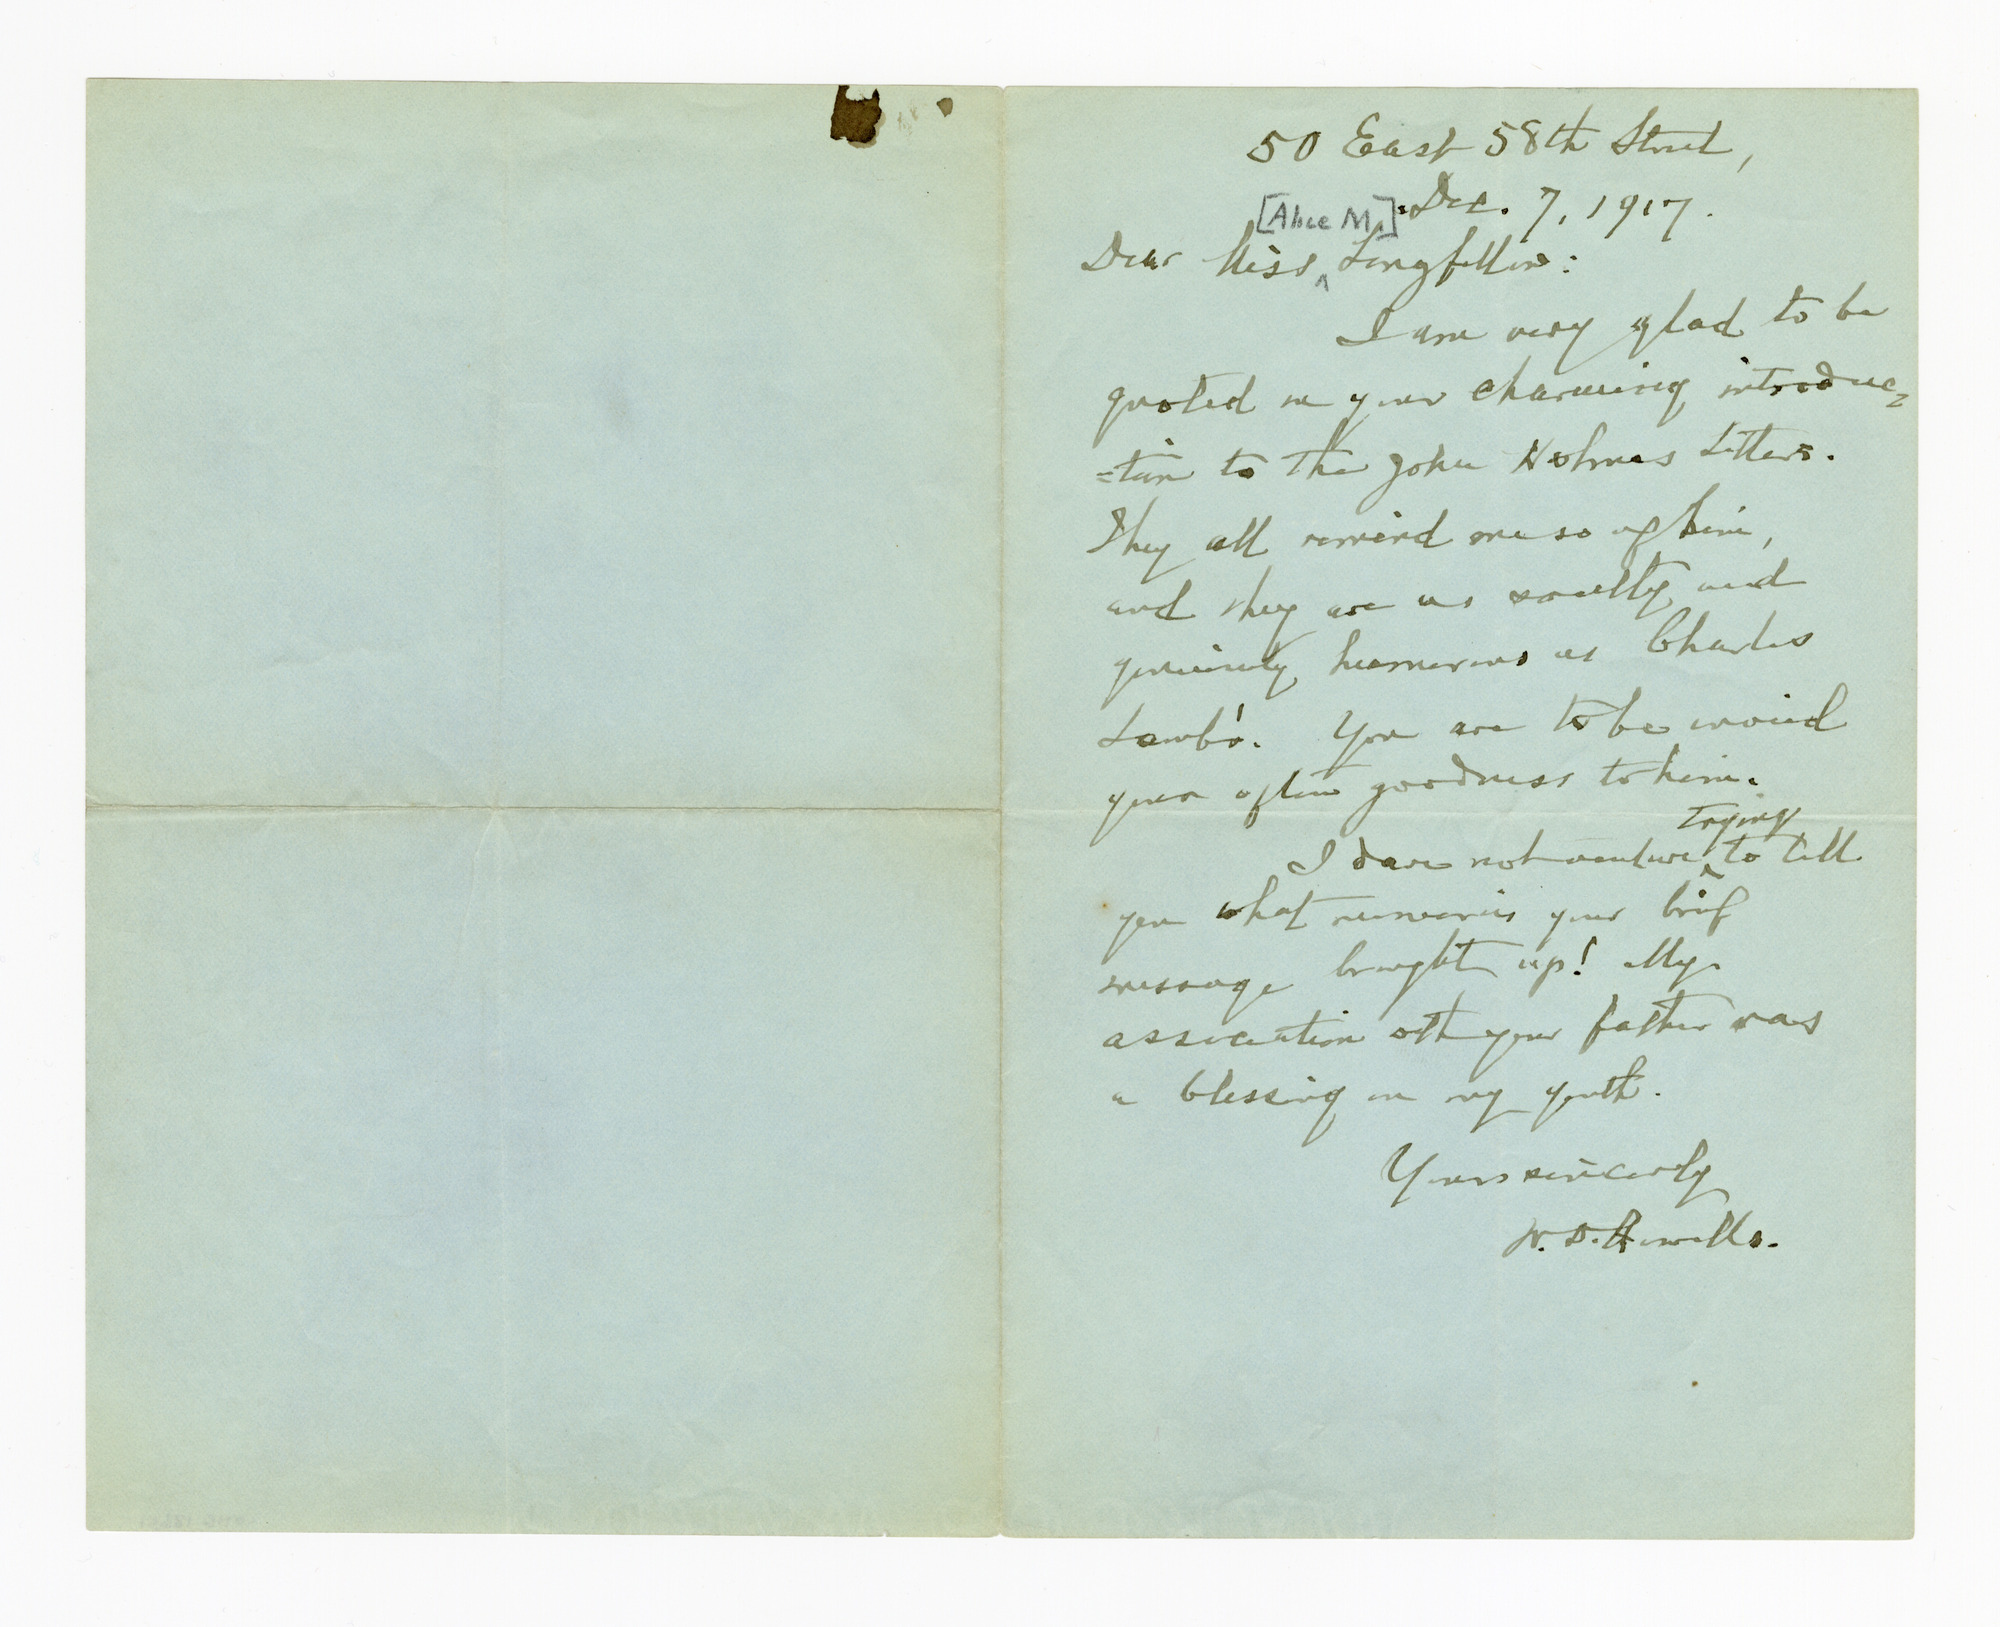 50 East 58th Street,
[Alice M.] Dec. 7, 1917.
Dear Miss ^ Longfellow:
I am very glad to be
quoted in your charming introduc=
=tion to the John Holmes Letters.
They all remind me so of him,
and they are as sweetly and
genuinely humorous as Charles
Lamb's. You are to be envied
your often goodness to him.
trying
I dare not venture ^ to tell
you what memories your brief
message brought up! My
association with your father was
a blessing in my youth.
Yours sincerely
W. D. Howells.